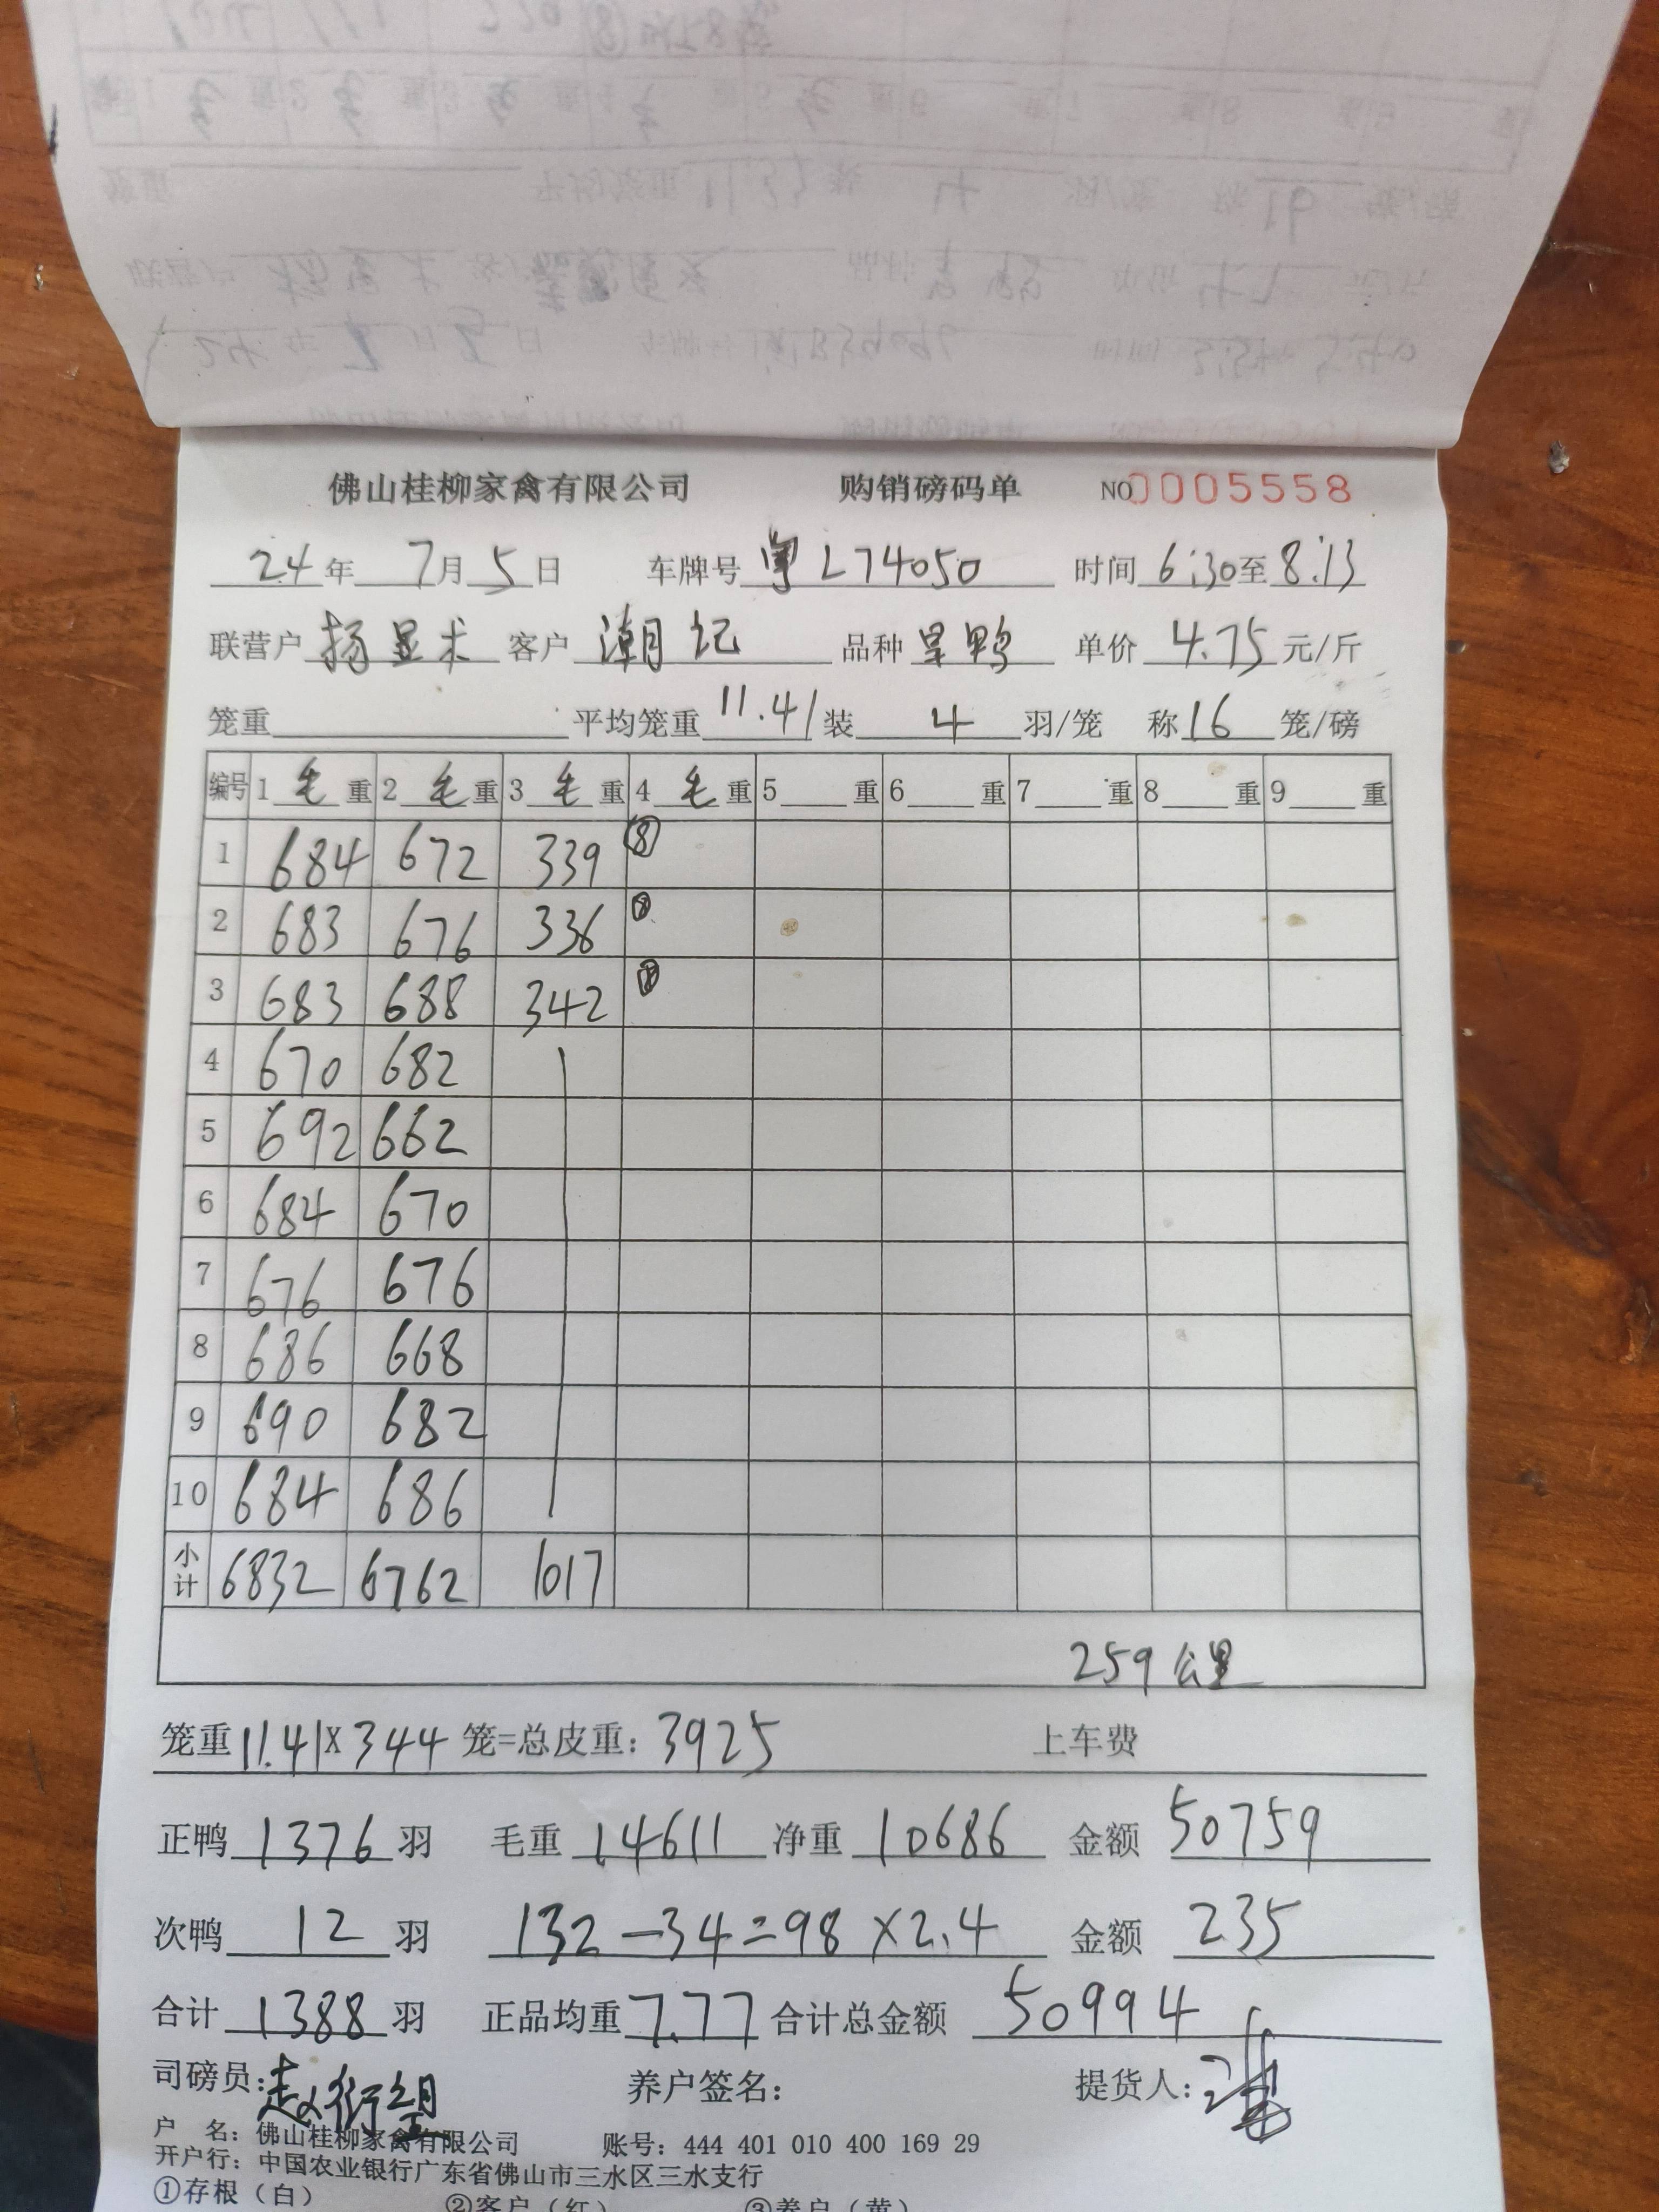 佛山桂柳家禽有限公司 购销磅码单 NO 0005558
24年 7月 5日 车牌号 粤L74050 时间 6:30至8:13
联营户 杨显术 客户 潮记 品种 旱鸭 单价 4.75 元/斤
笼重 平均笼重 11.41 装 4 羽/笼 称 16 笼/磅
编号 1 毛 重 2 毛 重 3 毛 重 4 毛 重 5 重 6 重 7 重 8 重 9 重
1 684 672 339 ⑧
2 683 676 336
3 683 688 342
4 670 682
5 692 662
6 684 670
7 676 676
8 686 668
9 690 682
10 684 686
小计 6832 6762 1017
259公里
笼重 11.41X344 笼=总皮重: 3925 上车费
正鸭 1376 羽 毛重 14611 净重 10686 金额 50759
次鸭 12 羽 132-34=98×2.4 金额 235
合计 1388 羽 正品均重 7.77 合计总金额 50994
司磅员: 养户签名: 提货人:
户 名: 佛山桂柳家禽有限公司 账号: 444 401 010 400 169 29
开户行: 中国农业银行广东省佛山市三水区三水支行
①存根（白） ②客户（红） ③养户（黄）